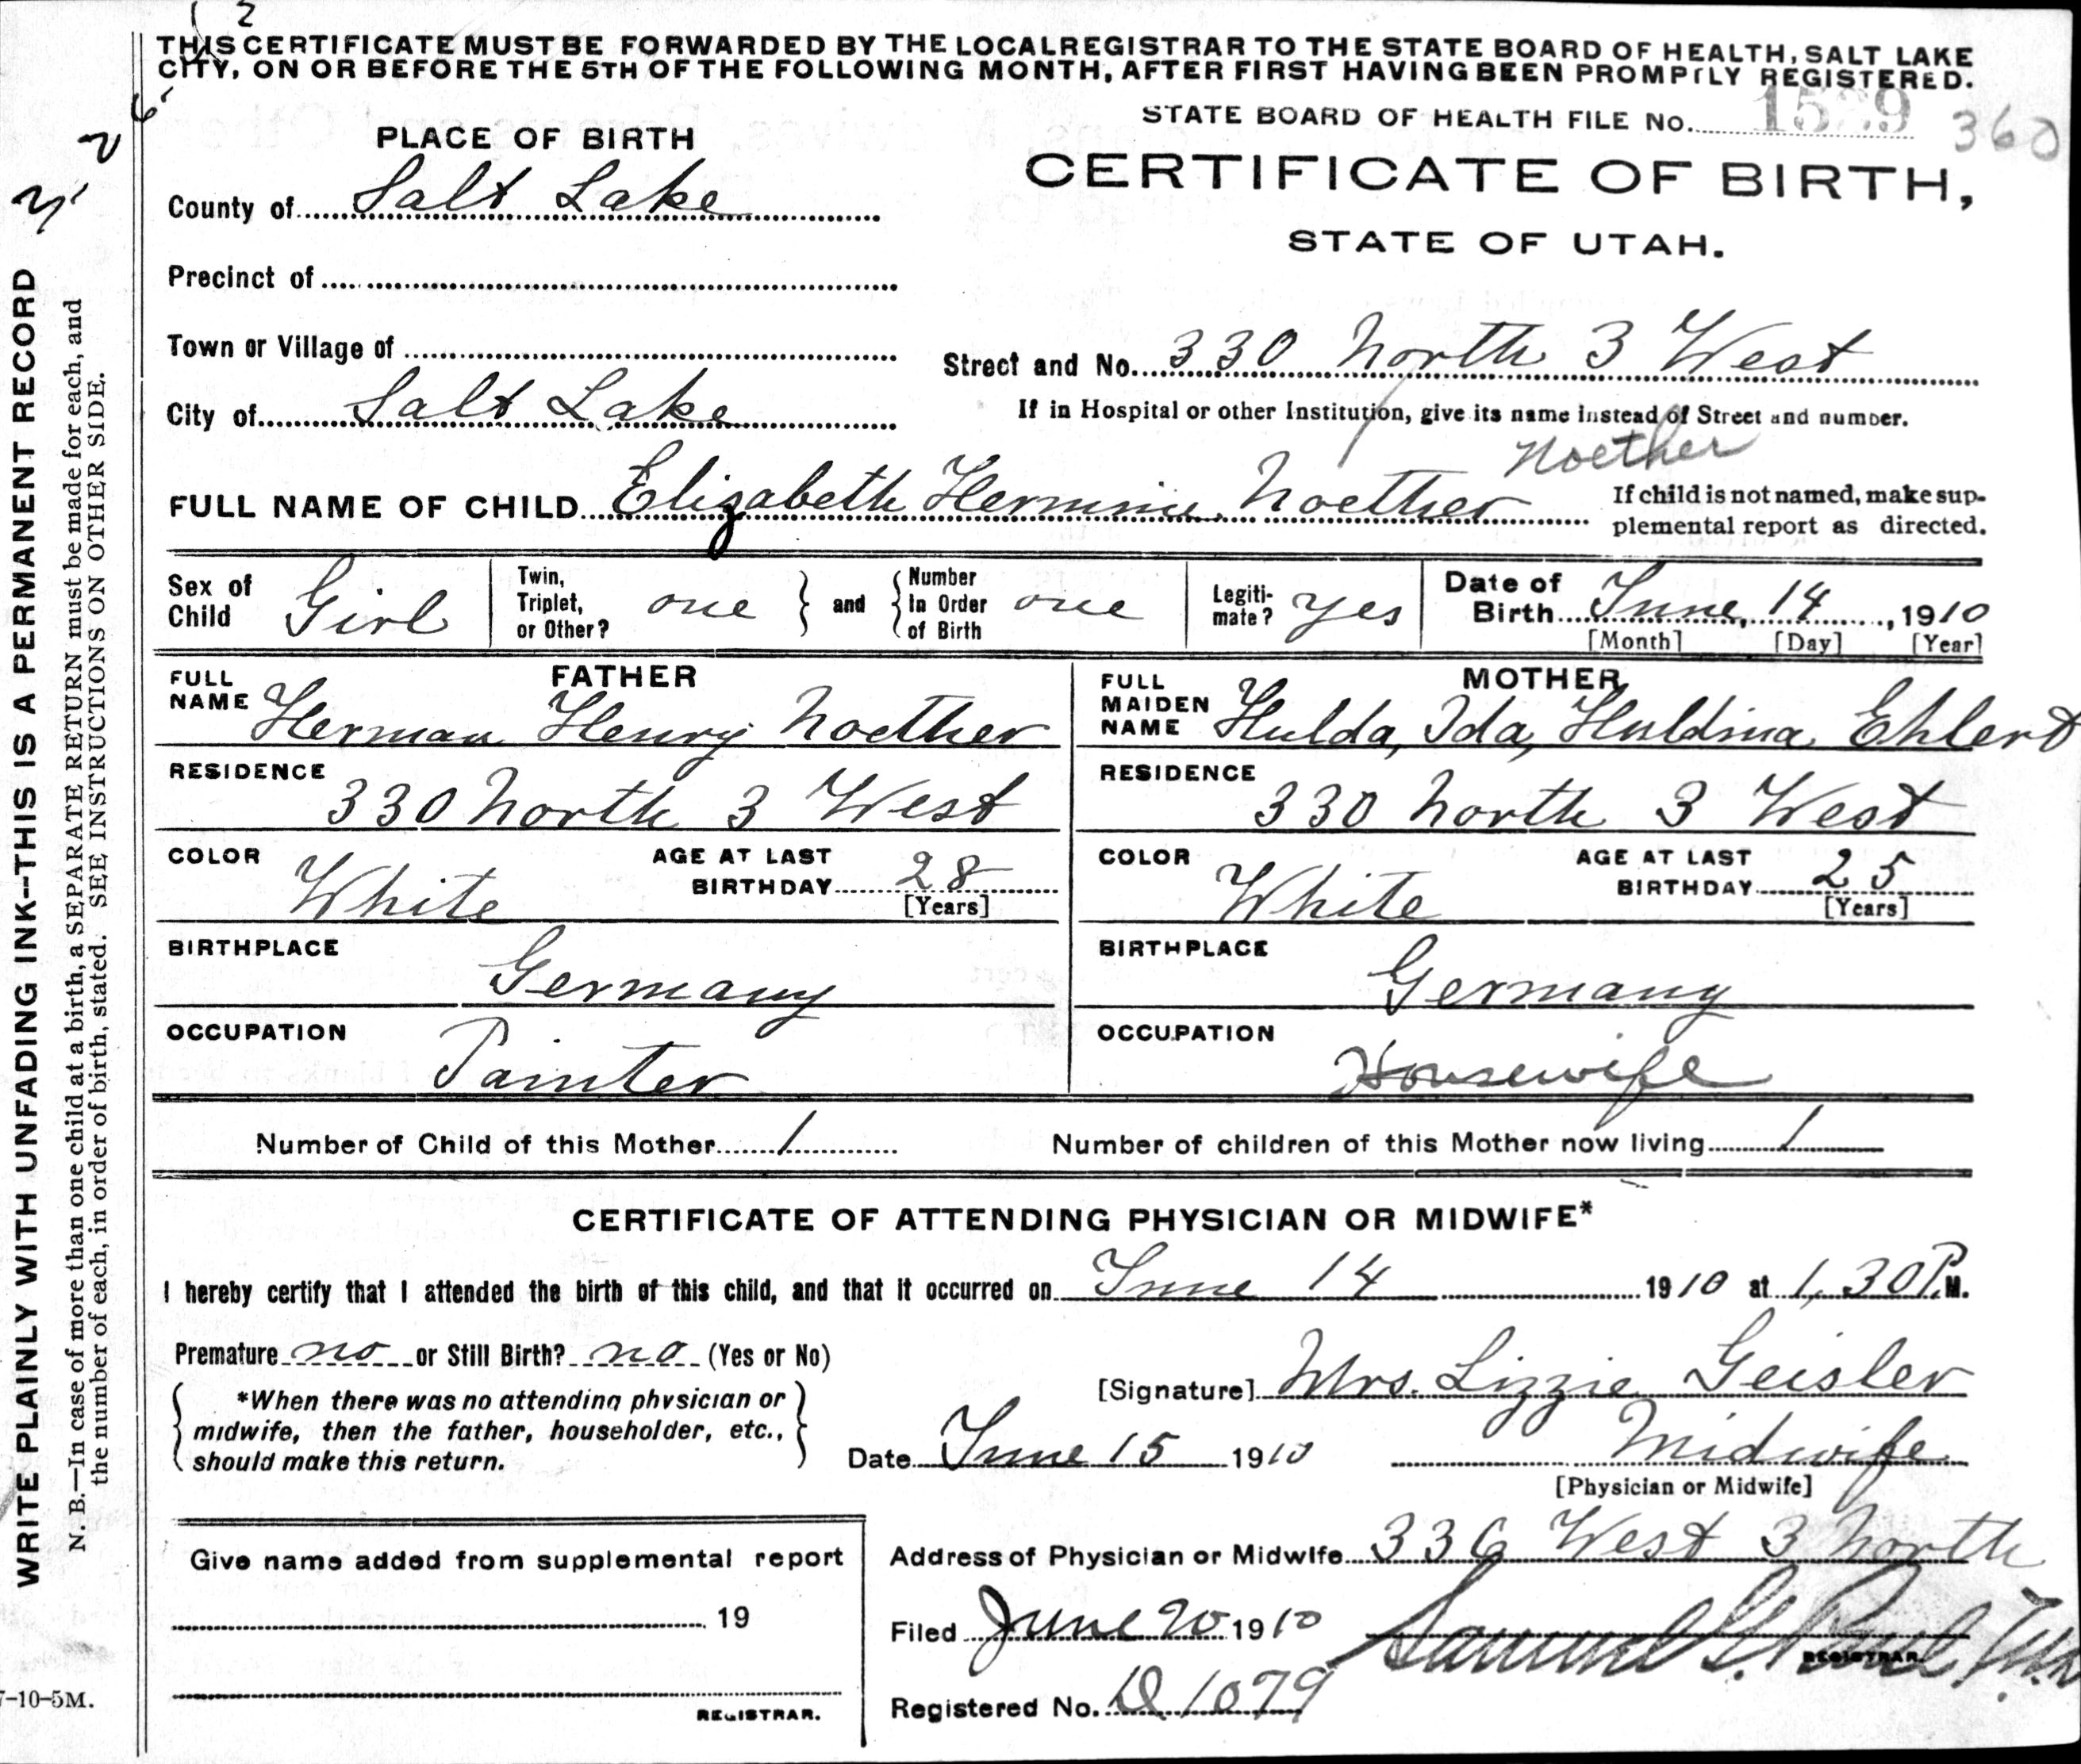 2
THIS CERTIFICATE MUST BE FORWARDED BY THE LOCAL REGISTRAR TO THE STATE BOARD OF HEALTH, SALT LAKE
CITY, ON OR BEFORE THE 5TH OF THE FOLLOWING MONTH, AFTER FIRST HAVING BEEN PROMPTLY REGISTERED.
STATE BOARD OF HEALTH FILE No. 360
PLACE OF BIRTH
CERTIFICATE OF BIRTH,
STATE OF UTAH.
County of Salt Lake
Precinct of
Town or Village of
Street and No. 330 North 3 West
City of Salt Lake
If in Hospital or other Institution, give its name instead of Street and number.
Noether
FULL NAME OF CHILD Elizabeth Hermine Noether
If child is not named, make sup-
plemental report as directed.
Sex of Child Girl
Twin, Triplet, or Other? one and Number In Order of Birth one
Legiti-mate? yes
Date of Birth June, 14, 1910
[Month] [Day] [Year]
FATHER
FULL NAME Herman Henry Noether
RESIDENCE 330 North 3 West
COLOR White AGE AT LAST BIRTHDAY 28
[Years]
BIRTHPLACE Germany
OCCUPATION Painter
MOTHER
FULL MAIDEN NAME Hulda, Ida, Huldina Ehlert
RESIDENCE 330 North 3 West
COLOR White AGE AT LAST BIRTHDAY 25
[Years]
BIRTHPLACE Germany
OCCUPATION Housewife
Number of Child of this Mother 1 Number of children of this Mother now living 1
CERTIFICATE OF ATTENDING PHYSICIAN OR MIDWIFE*
I hereby certify that I attended the birth of this child, and that it occurred on June 14 1910 at 1,30 P.M.
Premature no or Still Birth? no (Yes or No)
[Signature] Mrs. Lizzie Geisler
*When there was no attending physician or
midwife, then the father, householder, etc.,
should make this return.
Date June 15 1910
Midwife
[Physician or Midwife]
Give name added from supplemental report
19
REGISTRAR.
Address of Physician or Midwife 336 West 3 North
Filed June 20 1910 Samuel G. Paul
REGISTRAR.
Registered No. D 1079
7-10-5M.
WRITE PLAINLY WITH UNFADING INK--THIS IS A PERMANENT RECORD
N. B.—In case of more than one child at a birth, a SEPARATE RETURN must be made for each, and
the number of each, in order of birth, stated. SEE INSTRUCTIONS ON OTHER SIDE.